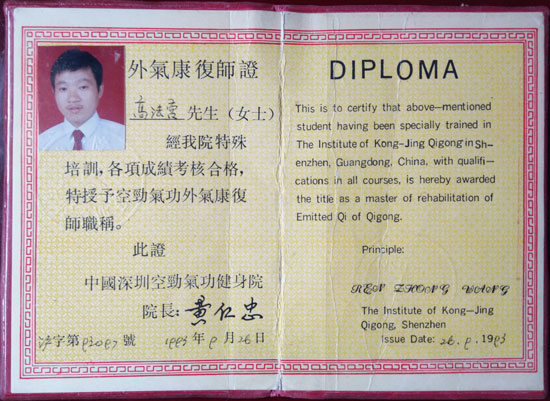 外氣康復師證
高法 先生（女士）
經我院特殊
培訓，各項成績考核合格，
特授予空勁氣功外氣康復
師職稱。
此證
中國深圳空勁氣功健身院
院長：黃仁忠
字第 號 1993年9月26日
DIPLOMA
This is to certify that above—mentioned
student having been specially trained in
The Institute of Kong—Jing Qigong in Sh-
enzhen, Guangdong, China, with qualifi-
cations in all courses, is hereby awarded
the title as a master of rehabilitation of
Emitted Qi of Qigong.
Principle:
REN ZHONG WANG
The Institute of Kong—Jing
Qigong, Shenzhen
Issue Date: 26. 9. 1993